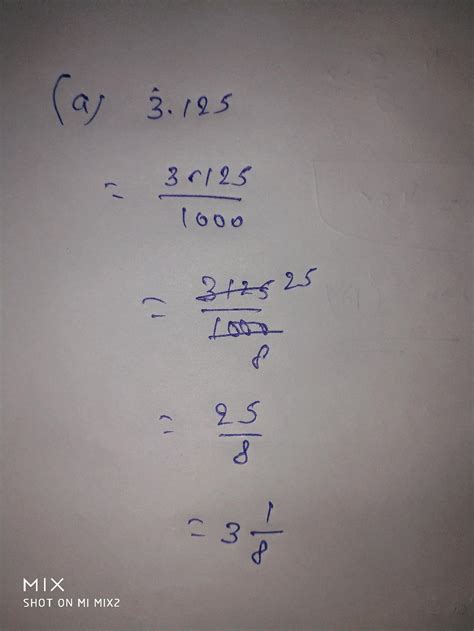 (a) 3.125
= 3125/1000
= 3125/1000 25 8
= 25/8
= 3 1/8
MIX
SHOT ON MI MIX2